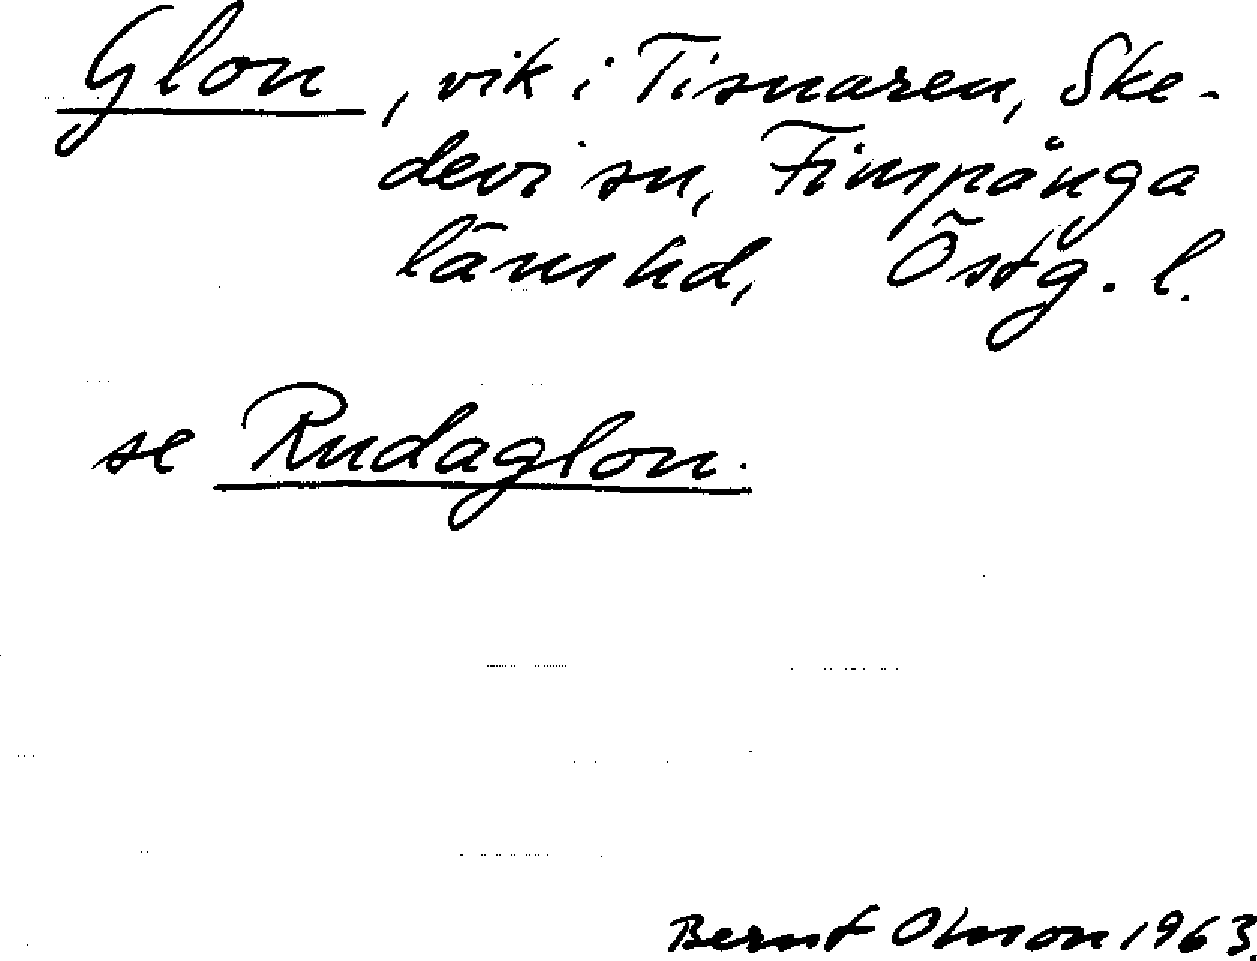 Glon, vik i Tisnaren, Ske-
devi sn, Finspånga
länshd, Östg. l.
se Rudaglon.
Bernt Olsson 1963.